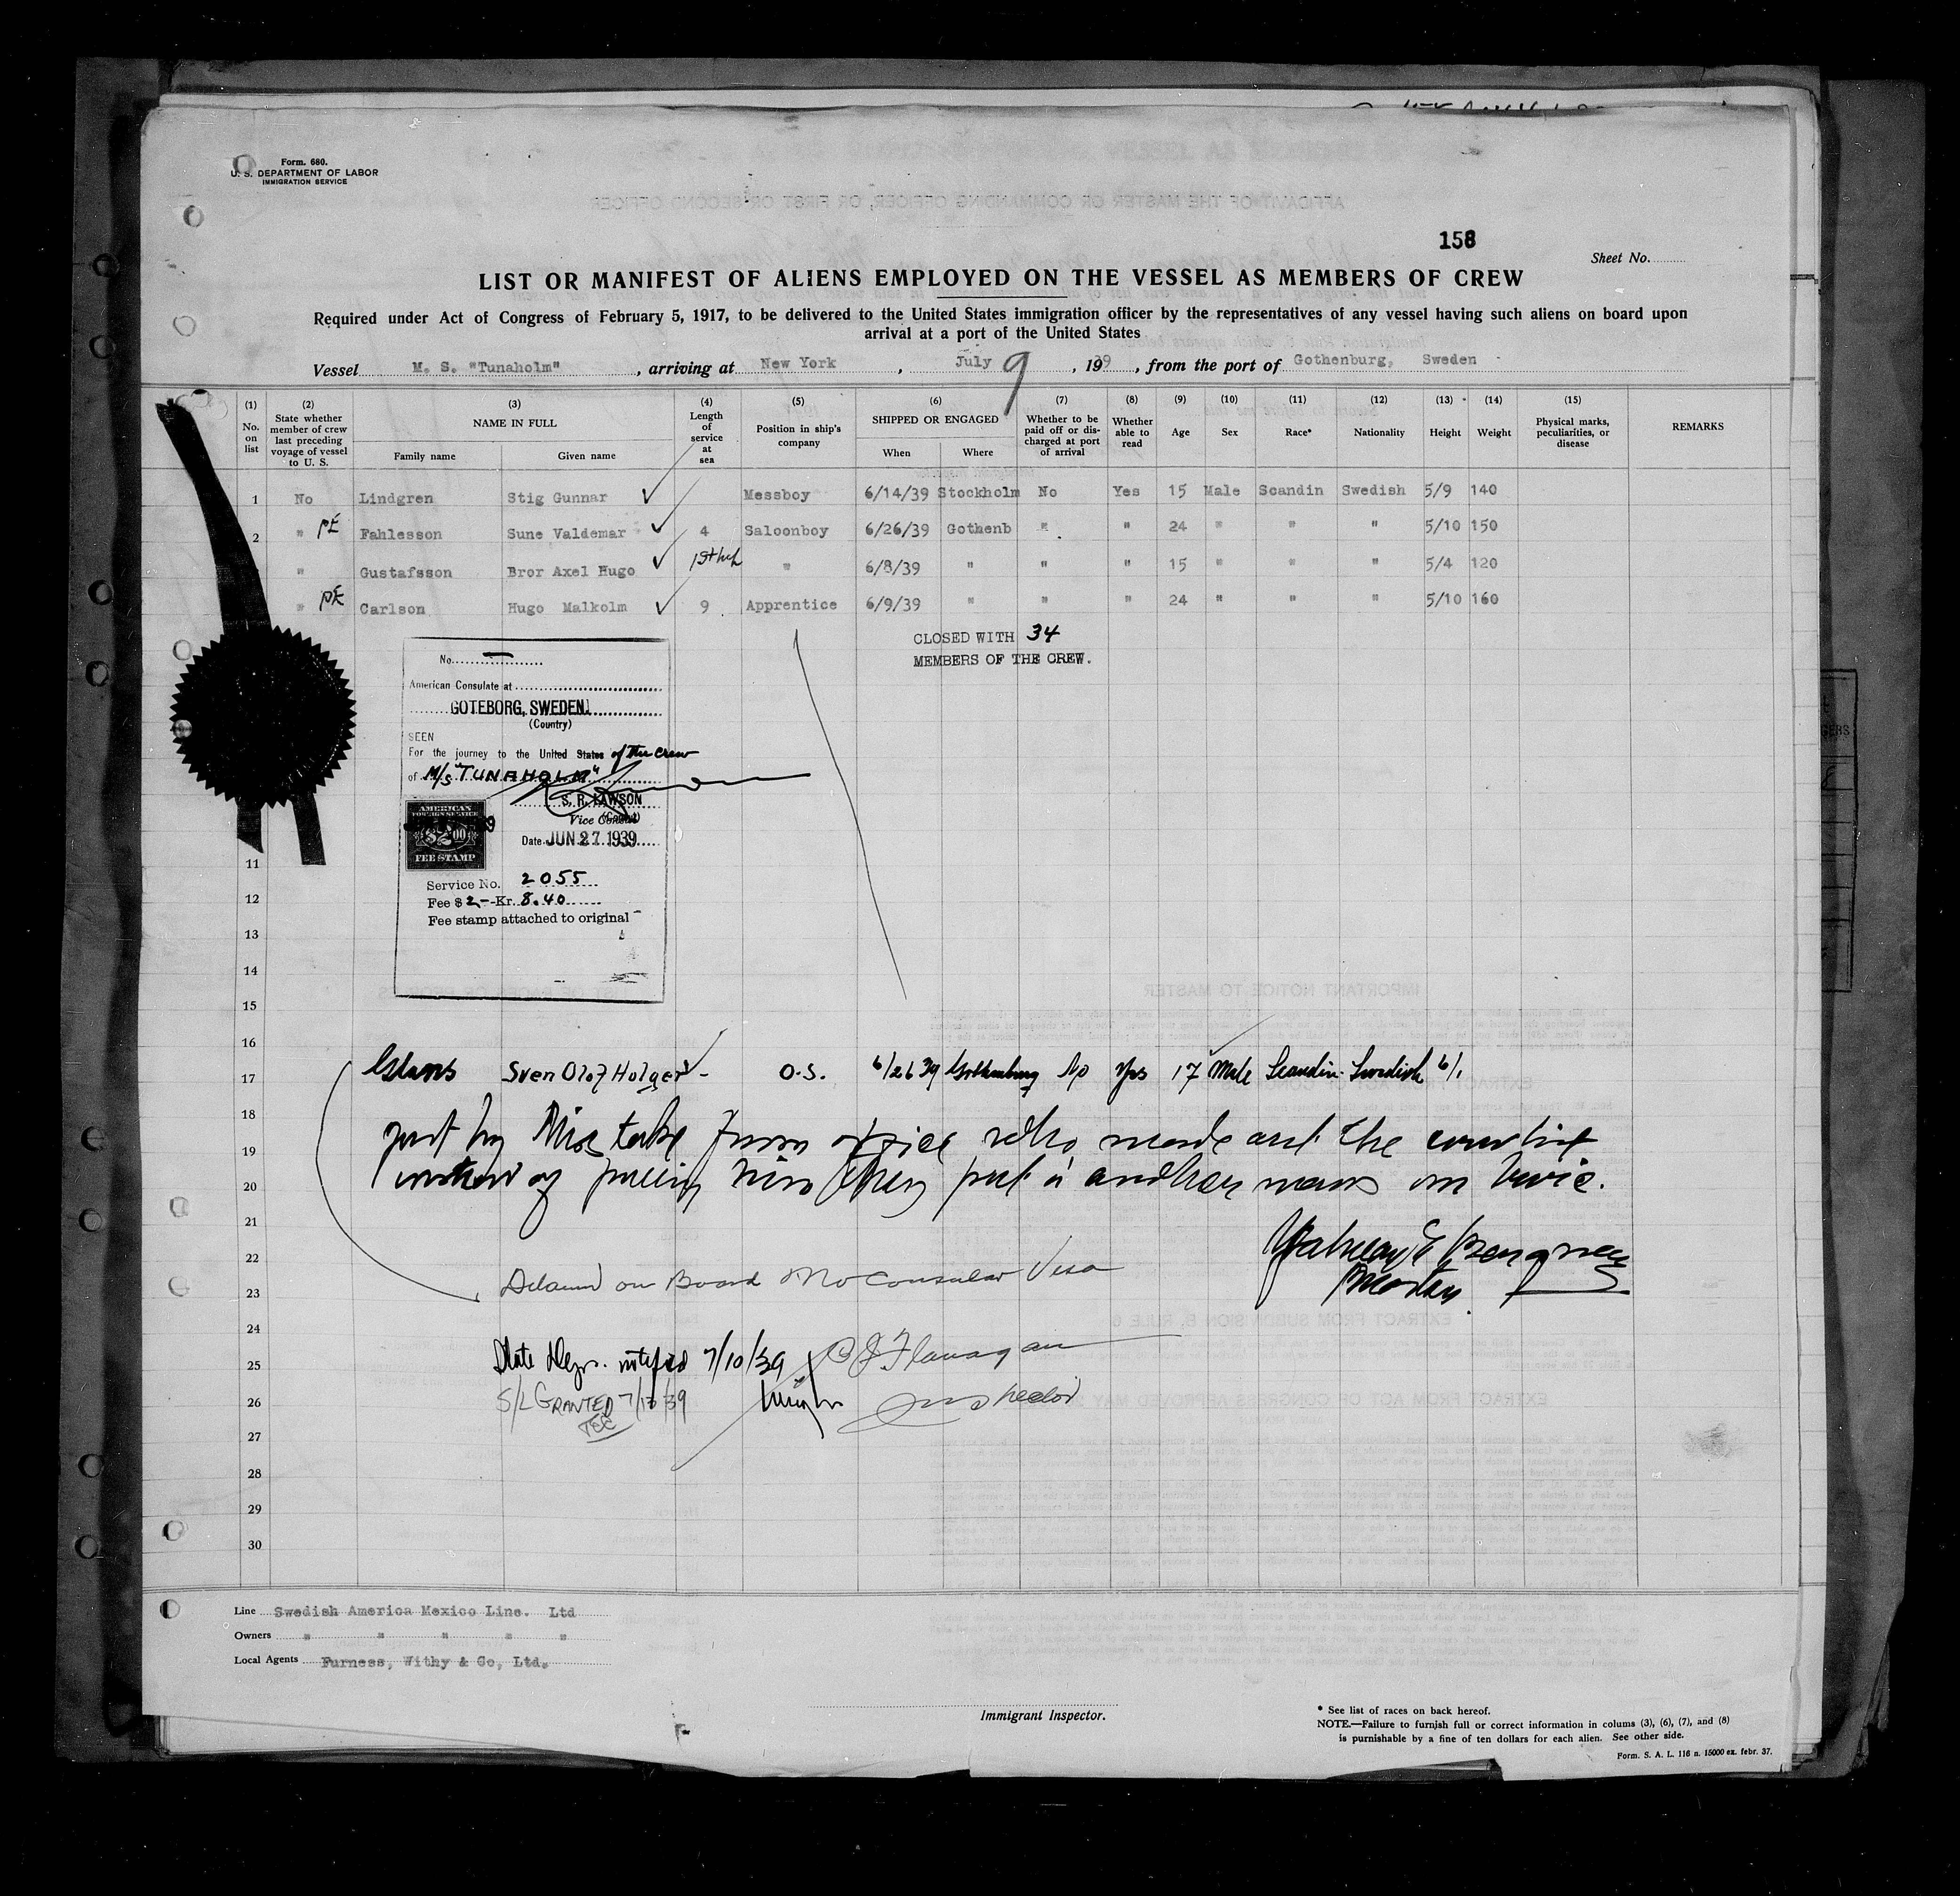 Form. 680.
U. S. DEPARTMENT OF LABOR
IMMIGRATION SERVICE
158
Sheet No.
LIST OR MANIFEST OF ALIENS EMPLOYED ON THE VESSEL AS MEMBERS OF CREW
Required under Act of Congress of February 5, 1917, to be delivered to the United States immigration officer by the representatives of any vessel having such aliens on board upon
arrival at a port of the United States
Vessel M. S. "Tunaholm", arriving at New York, July 9, 1939, from the port of Gothenburg, Sweden
(1) No. on list
(2) State whether member of crew last preceding voyage of vessel to U. S.
(3) NAME IN FULL Family name Given name
(4) Length of service at sea
(5) Position in ship's company
(6) SHIPPED OR ENGAGED When Where
(7) Whether to be paid off or discharged at port of arrival
(8) Whether able to read
(9) Age
(10) Sex
(11) Race*
(12) Nationality
(13) Height
(14) Weight
(15) Physical marks, peculiarities, or disease
REMARKS
1 No Lindgren Stig Gunnar Messboy 6/14/39 Stockholm No Yes 15 Male Scandin Swedish 5/9 140
2 " PE Fahlesson Sune Valdemar 4 Saloonboy 6/26/39 Gothenb " " 24 " " " 5/10 150
" Gustafsson Bror Axel Hugo 1st " 6/8/39 " " " 15 " " " 5/4 120
" PE Carlson Hugo Malkolm 9 Apprentice 6/9/39 " " " 24 " " " 5/10 160
CLOSED WITH 34
MEMBERS OF THE CREW.
No. —
American Consulate at
GOTEBORG, SWEDEN.
(Country)
SEEN
For the journey to the United States of the crew
of M/S "TUNAHOLM"
S. R. LAWSON
Vice Consul
AMERICAN
FOREIGN SERVICE
$2.00
FEE STAMP
Date JUN 27 1939
Service No. 2055
Fee $ 2,- Kr. 8.40
Fee stamp attached to original
11
12
13
14
15
16
17 Sven Olof Holger - O.S. 6/26 39 Gothenburg No Yes 17 Male Scandin Swedish 6/1
18
19 just by Mistake from office who made out the crewlist
20 instead of him they put another
21
22
23 on Board No Consular Visa
24
25 State Dept. notified 7/10/39 Flanagan
26 S/L GRANTED 7/13/39
27
28
29
30
Line Swedish America Mexico Line. Ltd
Owners " " " " "
Local Agents Furness, Withy & Co, Ltd.
Immigrant Inspector.
* See list of races on back hereof.
NOTE.—Failure to furnish full or correct information in colums (3), (6), (7), and (8)
is punishable by a fine of ten dollars for each alien. See other side.
Form. S. A. L. 116 n. 15000 ex. febr. 37.